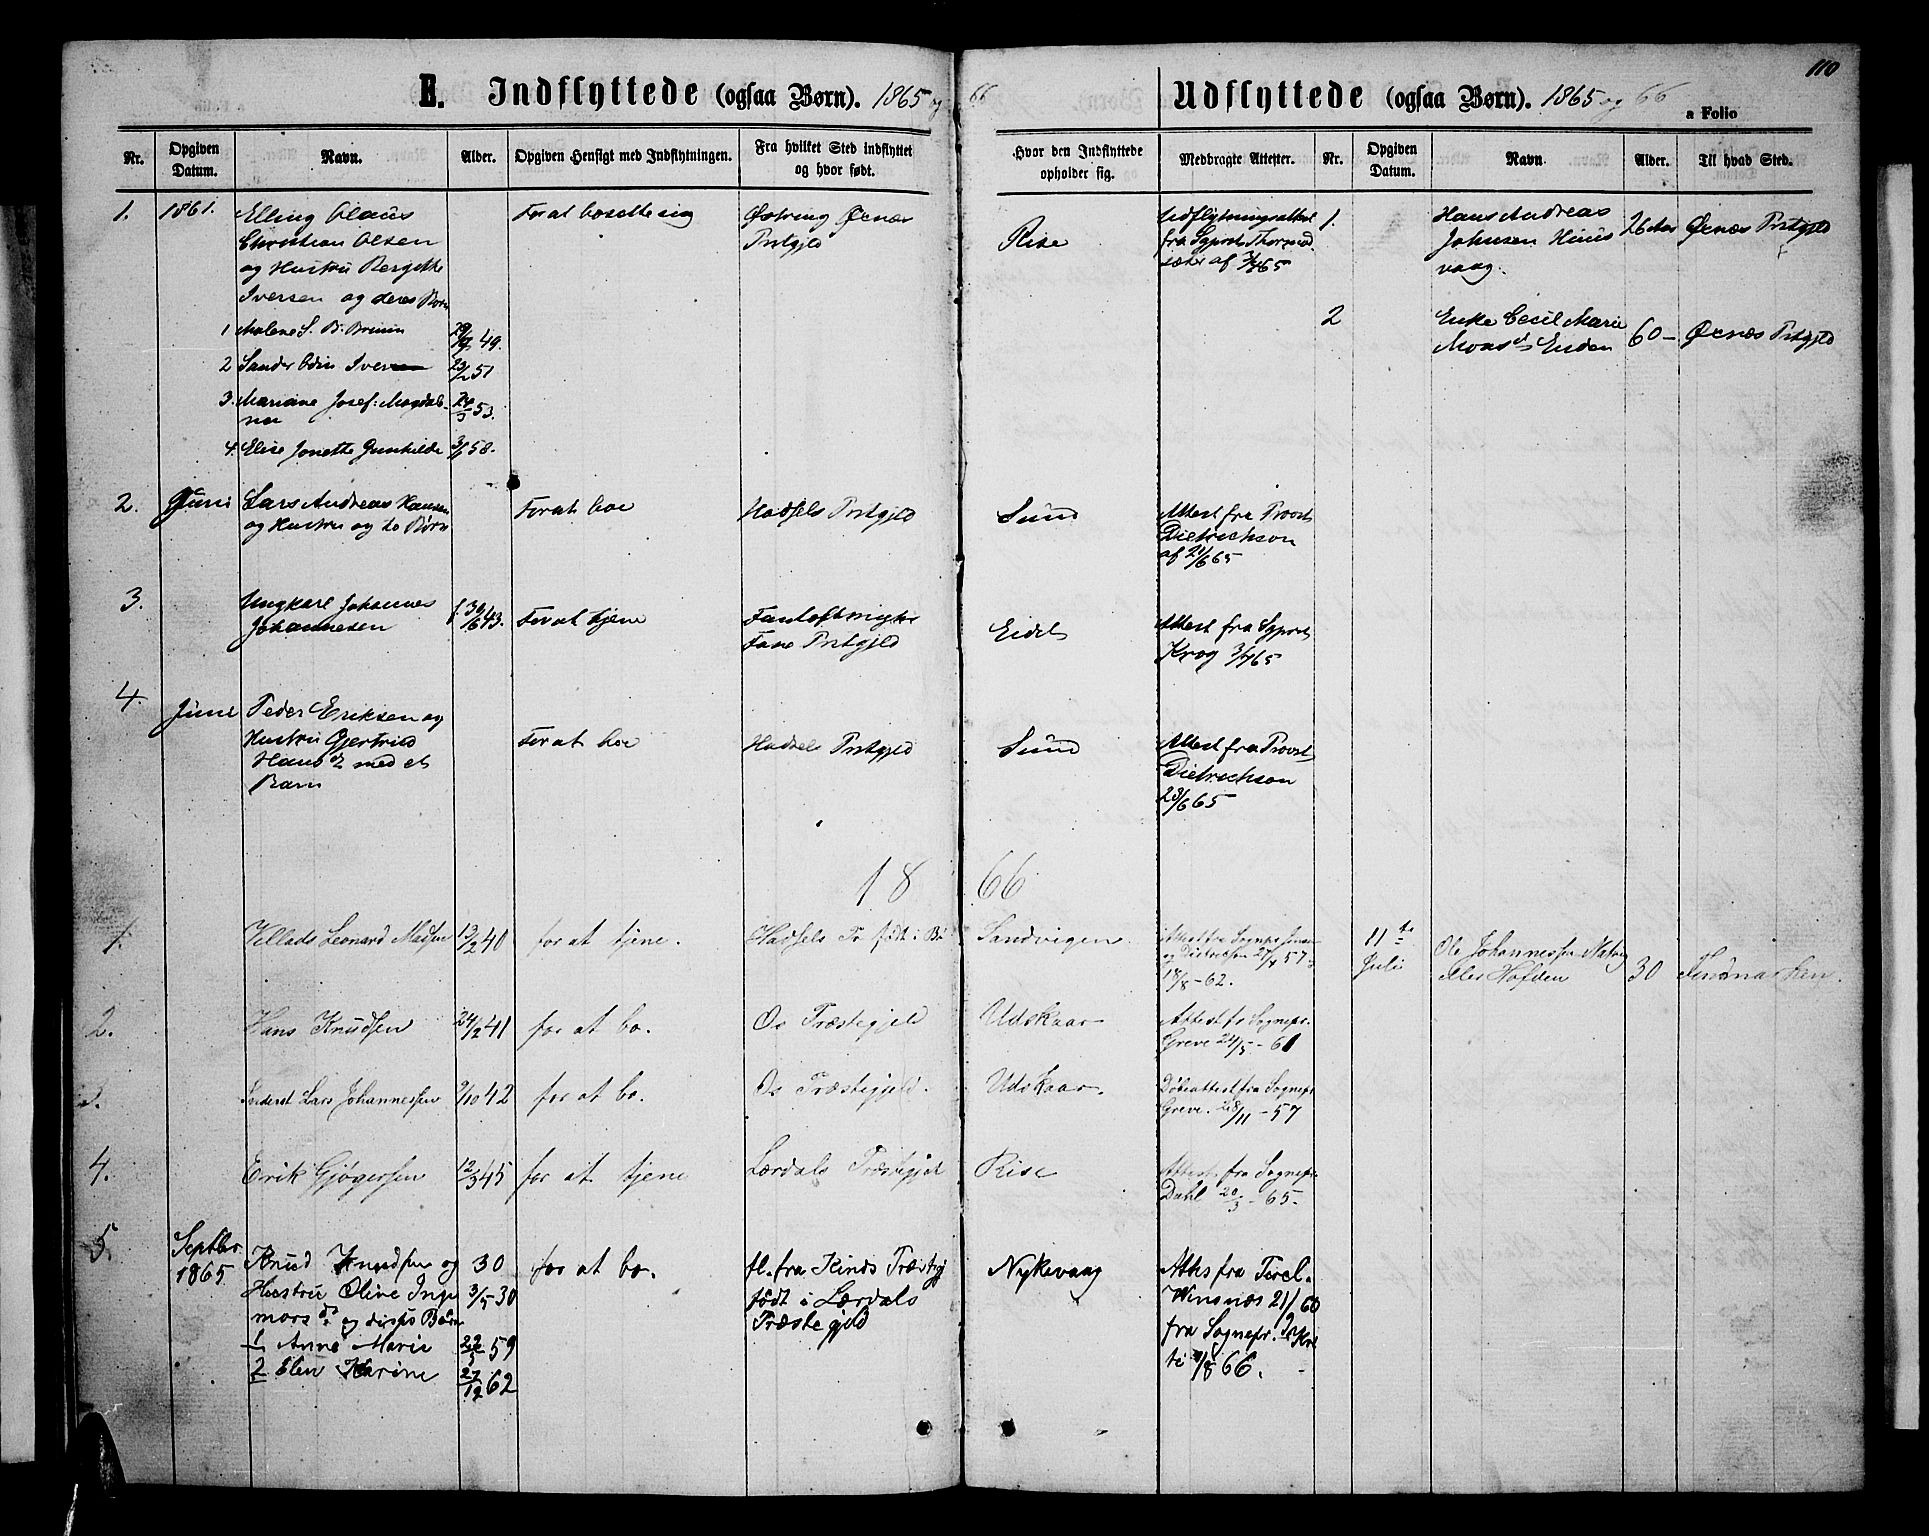 110
E. Indflyttede (ogsaa Børn). 1865 og 66
Udflyttede (ogsaa Børn). 1865 og 66
a Folio
Nr. Opgiven Datum. Navn. Alder. Opgiven Hensigt med Indflytningen. Fra hvilket Sted indflyttet og hvor født. Hvor den Indflyttede opholder sig. Medbragte Attester. Nr. Opgiven Datum. Navn. Alder. Til hvad Sted.
1. 1861. Elling Olaus
Christian Olsen
og Hustru Bergitte
Iversen og deres Børn
For at bosette sig
Øxnæs
Prstgjld
Rise
Udflytningsattest
fra Sgprst
af 65
1 Malene S. B. 49.
2 Sander Odin Iversen 51
3. Mariane Josef: Magdale-
na 24/3 53.
4. Elise Jonette Gunhilde 58.
1. Hans Andreas
Johnsen
vaag. 26 Aar Øxnæs Prstgjld
2 Enke Cecil Marie
60 — Øxnæs Prstgjld
2. Juni Lars Andreas Hansen
og Hustru og to Børn
For at boe
Hadsels Prstgjld
Sund
Attest fra Provst
Dietrichson
af 21/6 65
3. Ungkarl Johannes
Johannesen
f. 30/6 43.
For at tjene
Fane Prstgjld
Eidet
Attest fra Sgprst
Krog 65
4. Juni Peder Eriksen og
Hustru Gjertrud
Hansd med et
Barn
For at boe
Hadsels Prstgjld
Sund
Attest fra Provst
Dietrichson
23/6 65
18 66
1. Villads Leonard Madsen 13/2 40 for at tjene. Hadsels Pr født i Bø Sandvigen.
Attest fra Sognepr.
og Dietrichsen 57
18/8 – 62.
11te
Juli
Ole Johannessen
eller Hofden 30 Finnmarken.
2. Hans Knudsen 24/2 41 for at bo. Os Præstegjeld Udskaar
Attest fr Sognepr.
Greve 24/5 – 61
3. Lars Johannessen 9/10 42 for at bo. Os Præstegjeld. Udskaar.
Døbeattest fra Sognepr
Greve. 28/11 – 57
4. Erik Gjøgersen 12/3 45 for at tjene Lærdals Præstegjel Rise
Attest fra Sognepr.
Dahl 20/3 – 65.
5. Septbr.
1865
Knud Knudsen og 30
Hustru Olive Inge 3/5 30
mors d. og disses Børn
1 Anne Marie 22/5 59
2 Elen Karine 27/12 62
for at bo.
fl. fra Kinds Præstegj
født i Lærdals
Præstegjeld
Nykvaag
Atts fra
Winsnes 21/1 60
fra Sognepr.
66.